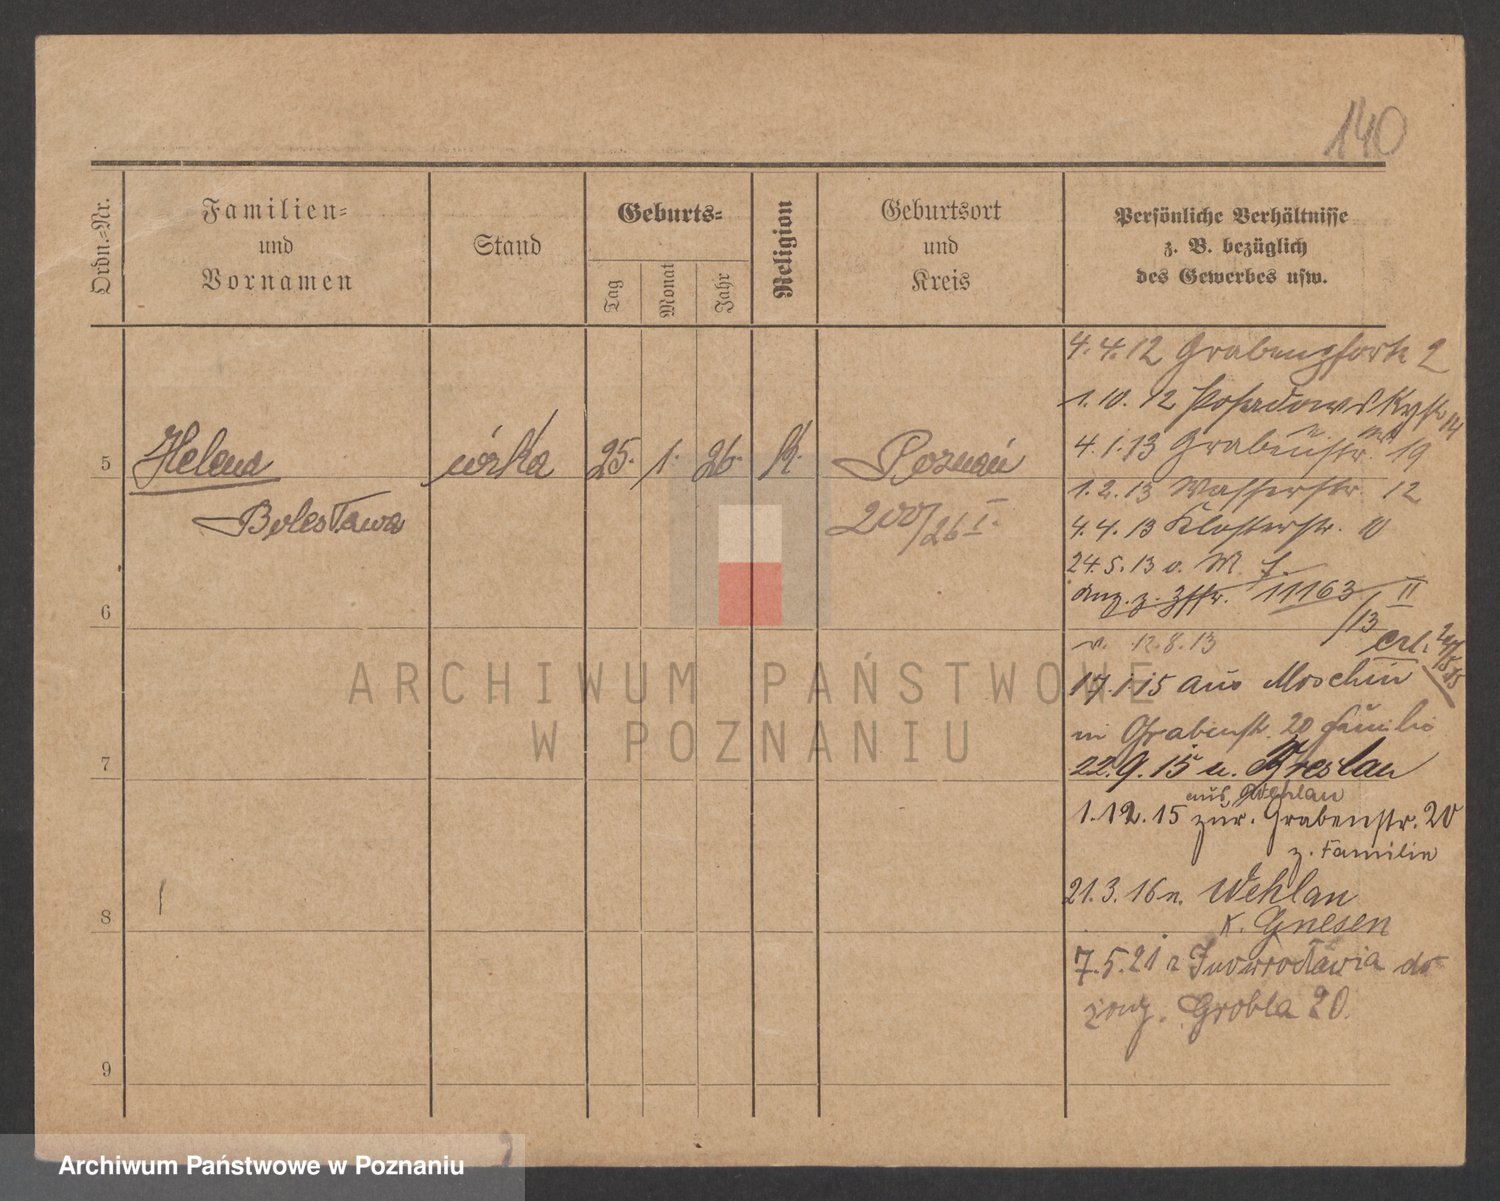 140
Ordn.=Nr.
Familien=
und
Vornamen
Stand
Geburts=
Tag
Monat
Jahr
Religion
Geburtsort
und
Kreis
Persönliche Verhältnisse
z. B. bezüglich
des Gewerbes usw.
4.4.12 Grabenpforte 2
1.10.12 Posadowskystr 14
4.1.13 Grabenstr. 19
1.2.13 Wasserstr. 12
4.4.13 Klosterstr. 10
24.5.13 v. M.
11163/13 II
v. 12.8.13
erl.
17.1.15 aus Moschin
in Grabenstr. 20 Familie
22.9.15 n. Breslau
aus Wehlau
1.12.15 zur. Grabenstr. 20
z. Familie
21.3.16 n. Wehlau
K. Gnesen
7.5.21 z Inowrocławia do
Grobla 20.
5 Helena córka 25. 1. 26. K. Poznań
Bolesława 200/26 I.
6
7
8
9
ARCHIWUM PAŃSTWOWE
W POZNANIU
Archiwum Państwowe w Poznaniu